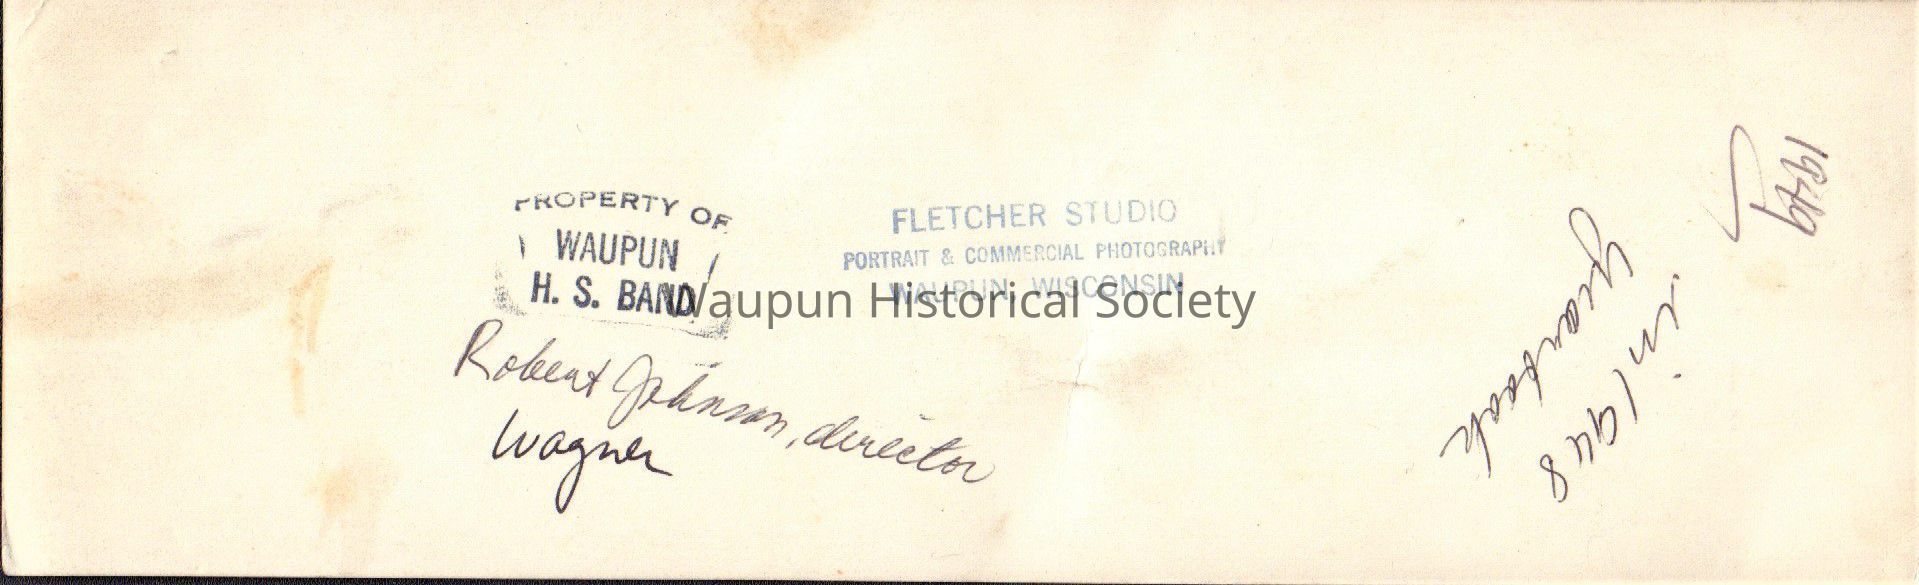 PROPERTY OF
WAUPUN
H. S. BAND
FLETCHER STUDIO
PORTRAIT & COMMERCIAL PHOTOGRAPHY
WAUPUN, WISCONSIN
Waupun Historical Society
Robert Johnson, director
Wagner
in 1948
yearbook
1949